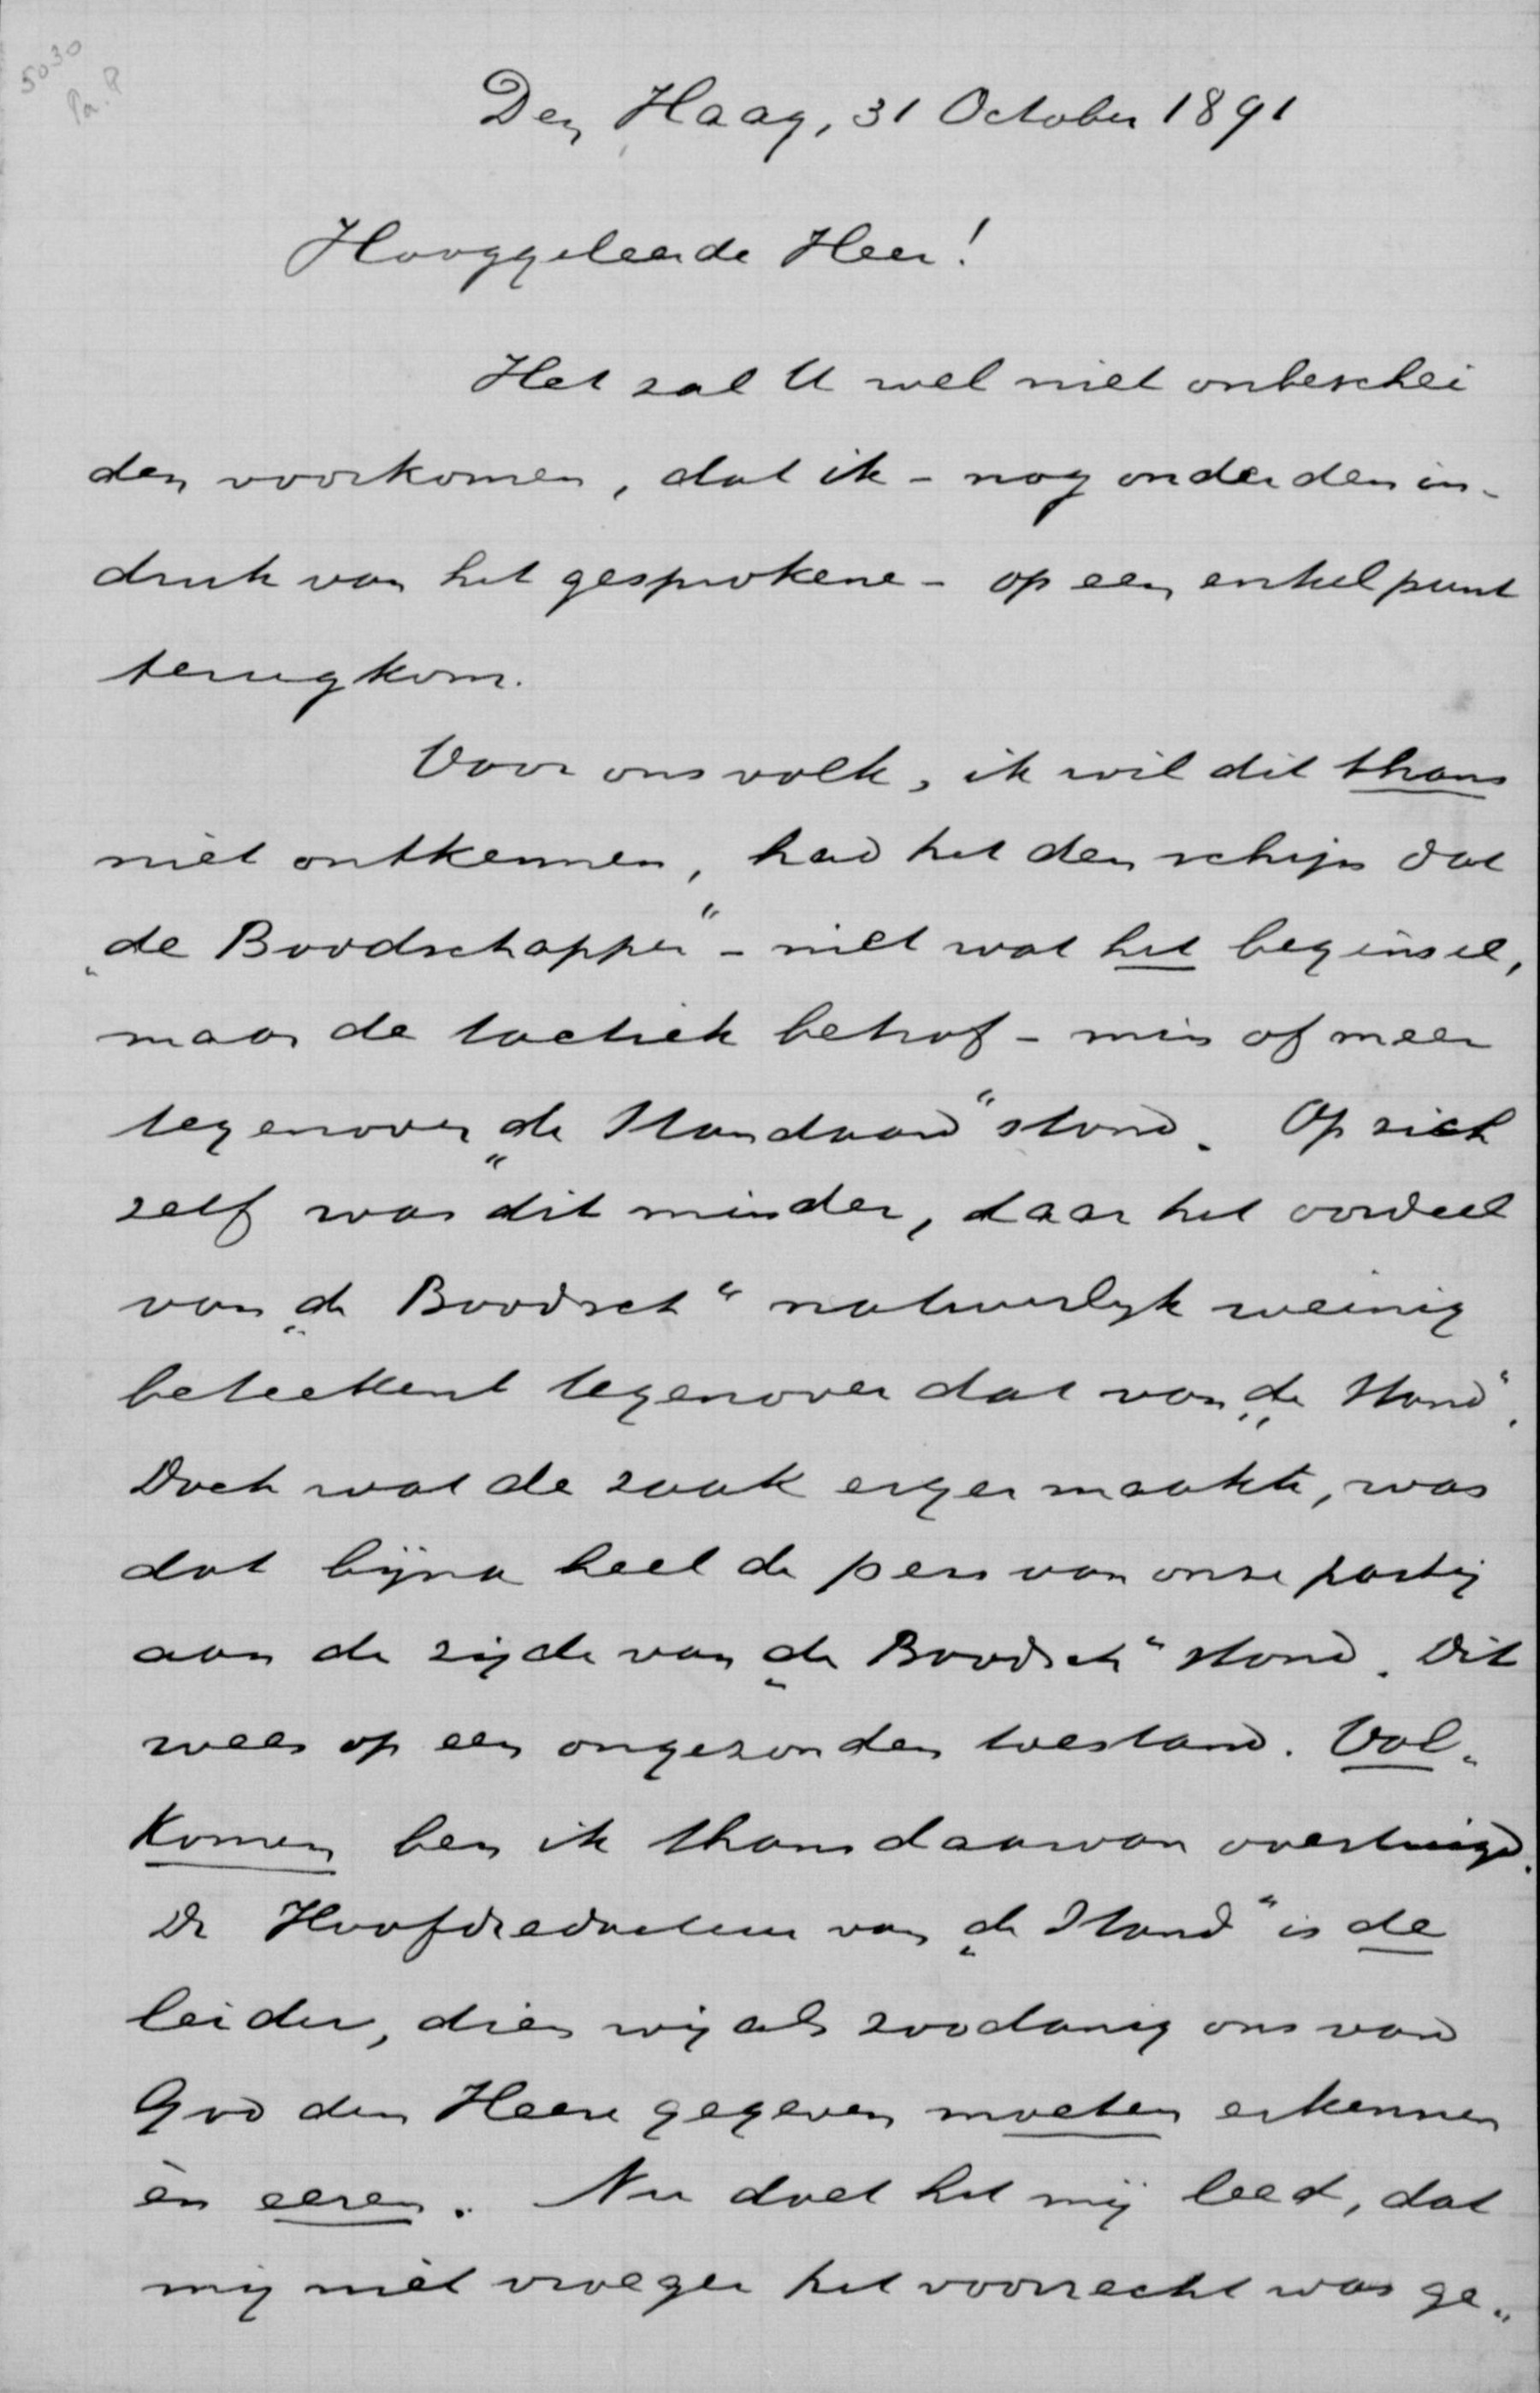 5030
Pa. P
Den Haag, 31 October 1891
Hooggeleerde Heer!
Het zal U wel niet onbeschei
den voorkomen, dat ik - nog onder den in-
druk van het gesprokene - op een enkel punt
terugkom.
Voor ons volk, ik wil dit thans
niet ontkennen, had het den schijn dat
„de Boodschapper“ - niet wat het beginsel,
maar de tactiek betrof - min of meer
tegenover „de Standaard“ stond. Op zich
zelf was dit minder, daar het oordeel
van „de Boodsch“ natuurlyk weinig
beteekent tegenover dat van „de Stand“.
Doch wat de zaak erger maakte, was
dat bijna heel de pers van onze partij
aan de zijde van „de Boodsch“ stond. Dit
wees op een ongezonden toestand. Vol-
komen ben ik thans daarvan overtuigd.
De Hoofdredacteur van „de Stand“ is de
leider, dien wij als zoodanig ons van
God den Heere gegeven moeten erkennen
èn eeren. Nu doet het mij leed, dat
mij niet vroeger het voorrecht was ge-